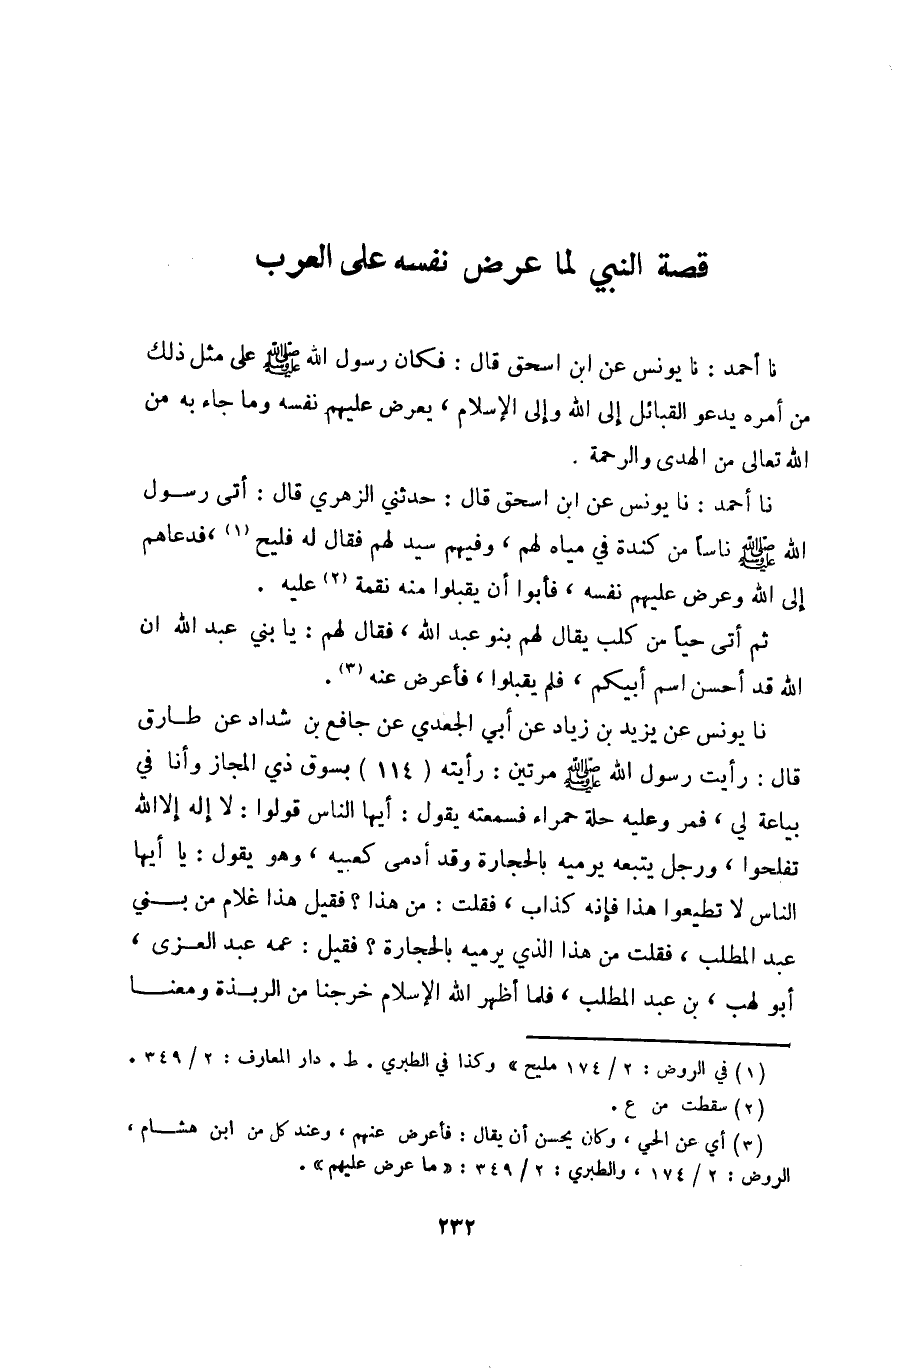 قصة النبي لما عرض نفسه على العرب
نا أحمد : نا يونس عن ابن اسحق قال : فكان رسول الله ﷺ على مثل ذلك
من أمره يدعو القبائل إلى الله وإلى الإسلام ، يعرض عليهم نفسه وما جاء به من
الله تعالى من الهدى والرحمة .
نا أحمد : نا يونس عن ابن اسحق قال : حدثني الزهري قال : أتى رسول
الله ﷺ ناساً من كندة في مياه لهم ، وفيهم سيد لهم فقال له فليح (١) ،فدعاهم
إلى الله وعرض عليهم نفسه ، فأبوا أن يقبلوا منه نقمة (٢) عليه .
ثم أتى حياً من كلب يقال لهم بنو عبد الله ، فقال لهم : يا بني عبد الله ان
الله قد أحسن اسم أبيكم ، فلم يقبلوا ، فأعرض عنه (٣) .
نا يونس عن يزيد بن زياد عن أبي الجعدي عن جافع بن شداد عن طارق
قال : رأيت رسول الله ﷺ مرتين : رأيته ( ١١٤ ) بسوق ذي المجاز وأنا في
بياعة لي ، فمر وعليه حلة حمراء فسمعته يقول : أيها الناس قولوا : لا إله إلا الله
تفلحوا ، ورجل يتبعه يرميه بالحجارة وقد أدمى كعبيه ، وهو يقول : يا أيها
الناس لا تطيعوا هذا فإنه كذاب ، فقلت : من هذا ؟ فقيل هذا غلام من بني
عبد المطلب ، فقلت من هذا الذي يرميه بالحجارة ؟ فقيل : عمه عبد العزى ،
أبو لهب ، بن عبد المطلب ، فلما أظهر الله الإسلام خرجنا من الربذة ومعنا
(١) في الروض : ٢ / ١٧٤ مليح » وكذا في الطبري . ط . دار المعارف : ٢ / ٣٤٩ .
(٢) سقطت من ع .
(٣) أي عن الحي ، وكان يحسن أن يقال : فأعرض عنهم ، وعند كل من ابن هشام ،
الروض : ٢ / ١٧٤ ، والطبري : ٢ / ٣٤٩ : « ما عرض عليهم » .
٢٣٢